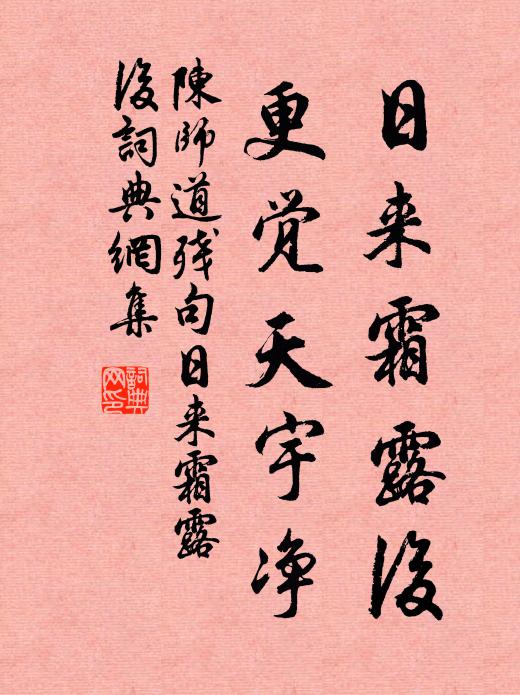 日来霜露後
更覺天宇净
陳師道残句日来霜露
後詞典網集
詞典網印